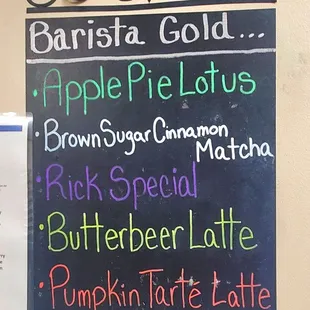 Barista Gold...
• Apple Pie Lotus
• Brown Sugar Cinnamon
Matcha
• Rick Special
• Butterbeer Latte
• Pumpkin Tarte Latte